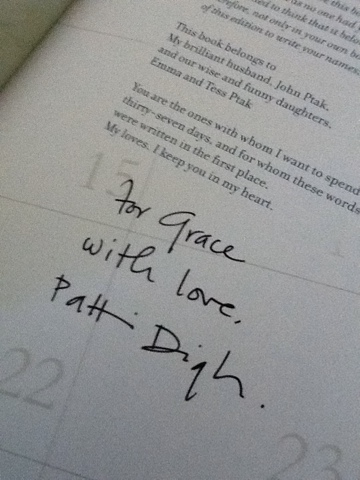 as no one had
to think that is
therefore, not only in your own
of this edition to write your name
This book belongs to
My brilliant husband, John Ptak,
and our wise and funny daughters,
Emma and Tess Ptak
You are the ones with whom I want to spend
thirty-seven days, and for whom these words
were written in the first place.
My loves, I keep you in my heart.
15
for Grace
with love,
Patti Digh.
22
23